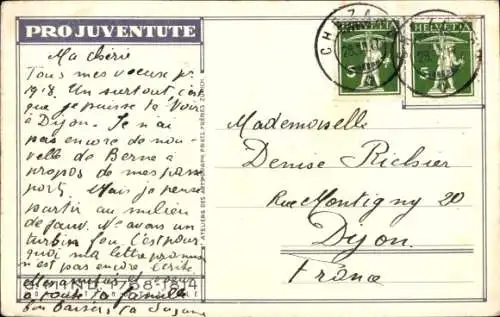 PRO JUVENTUTE
Ma chérie
Tous mes voeux pr.
1918. Un surtout c'est
que je puisse te voir
à Dijon. Je n'ai
pas encore de nou-
velle de Berne à
propos de mes passe
port. Mais je pense
partir au milieu
de janv. N'avais un
turbin fou c'est pour
quoi ma lettre promise
n'est pas encore écrite
à toute la famille
bons baisers ta Suzanne
1768-1814
ATELIERS DES ARTS GRAPH. FRÈRES, ZURICH
HELVETIA
HELVETIA
5
5
Mademoiselle
Denise Richier
Rue Montigny 20
Dijon.
France